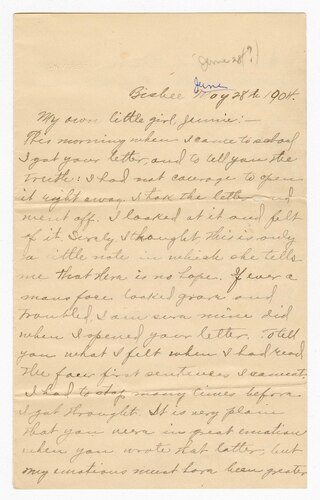 (June 28?)
June
Bisbee May 28th 1904.
My own little girl, Jennie:—
This morning when I came to school
I got your letter, and to tell you the
truth: I had not courage to open
it right away. I took the letter and
went off. I looked at it and felt
of it. Surely I thought this is only
a little note in which she tells
me that there is no hope. If ever a
mans face looked grave and
troubled, I am sure mine did
when I opened your letter. To tell
you what I felt when I had read
the few first sentences I cannot.
I had to stop many times before
I got through. It is very plain
that you were in great emotion
when you wrote that letter, but
my emotions must have been greater